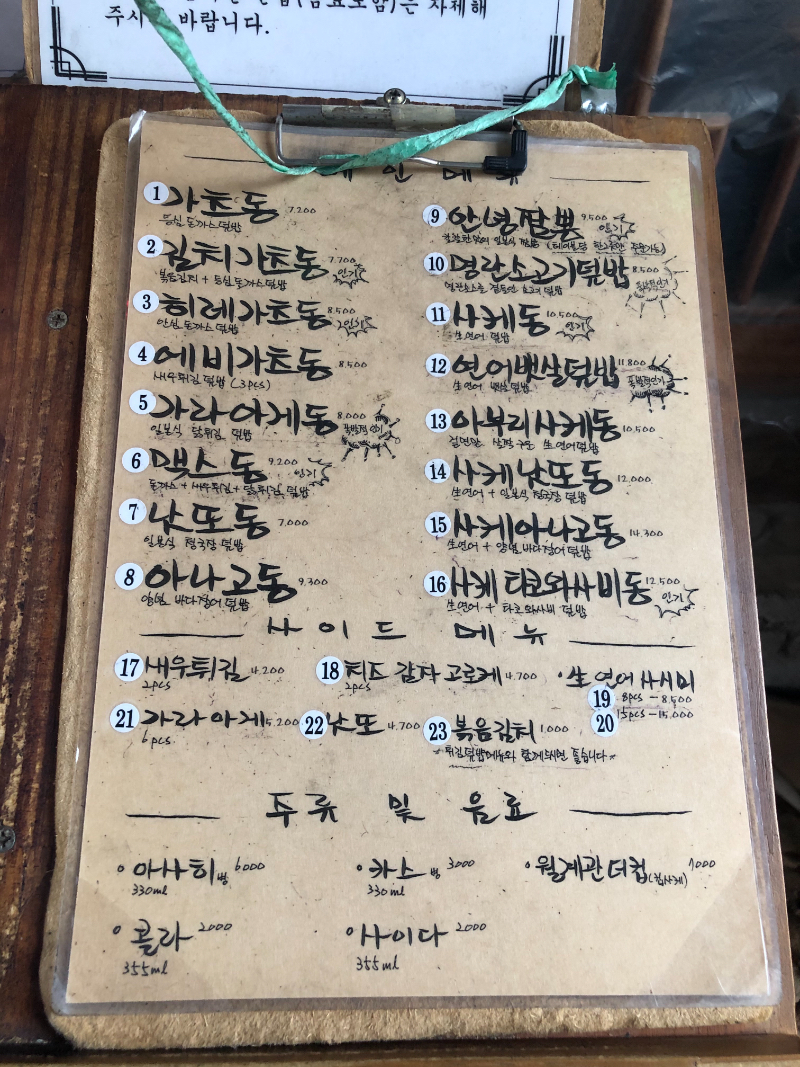 주시 바랍니다.
메인 메뉴
1 가츠동 7.200
등심 돈까스 덮밥
2 김치가츠동 7.700 인기
볶음김치 + 등심 돈까스 덮밥
3 히레가츠동 8.500 인기
안심 돈까스 덮밥
4 에비가츠동 8.500
새우튀김 덮밥 (3pcs)
5 가라아게동 8.000 폭발적인기
일본식 닭튀김 덮밥
6 믹스동 9.200 인기
돈까스 + 새우튀김 + 닭튀김 덮밥
7 낫또동 7.000
일본식 청국장 덮밥
8 아나고동 9.300
양념 바다장어 덮밥
9 안녕짬뽕 9.500 인기
일본식 짬뽕 (테이블당 한그릇만 주문가능)
10 명란소고기덮밥 8.500
명란소스를 곁들인 소고기 덮밥
11 사케동 10.500 인기
생연어 덮밥
12 연어뱃살덮밥 11.800 폭발적인기
생연어 뱃살 덮밥
13 아부리사케동 10.500
겉면만 살짝 구운 생연어덮밥
14 사케낫또동 12.000
생연어 + 일본식 청국장 덮밥
15 사케아나고동 14.300
생연어 + 양념 바다장어 덮밥
16 사케 타코와사비동 12.500 인기
생연어 + 타코와사비 덮밥
사이드 메뉴
17 새우튀김 4.200
2pcs
18 치즈 감자 고로케 4.700
2pcs
· 생연어 사시미
19 8pcs - 8,500
20 15pcs - 15,000
21 가라아게 5.200
6pcs
22 낫또 4.700
23 볶음김치 1.000
* 튀김덮밥메뉴와 함께드시면 좋습니다 *
주류 및 음료
· 아사히 병 6000
330ml
· 카스 병 3000
330ml
· 월계관 더컵 (컵사케) 7000
· 콜라 2000
355ml
· 사이다 2000
355ml